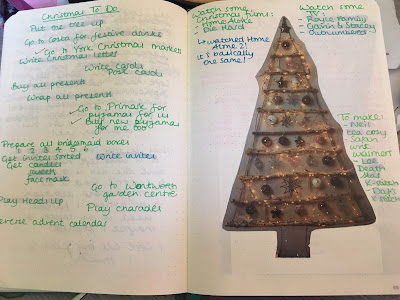 Christmas To Do
Put our tree up
Go to Costa for festive drinks
Go to York Christmas market
Write Christmas letter
Write cards
Post cards
Buy all present
Wrap all present
Go to Primark for
pyjamas for us
Buy new pyjamas
for me too
Prepare all bridesmaid boxes
1 2 3 4 5 6
Get invites sorted Write invites
Get candles
sweets
face mask
Go to Wentworth
garden centre
Play Heads Up
Play charades
exercise advent calendar
Watch some
Christmas films:
Home Alone
Die Hard
↳ watched Home
Alone 2!
it's basically
the same!
Watch some
TV:
- Royle Family
- Gavin & Stacey
- Outnumbered
To make:
- Neil
tea cosy
- Safari
wrist
warmers
- Lee
Death
Star
X-stitch
- Dad's
X-stitch